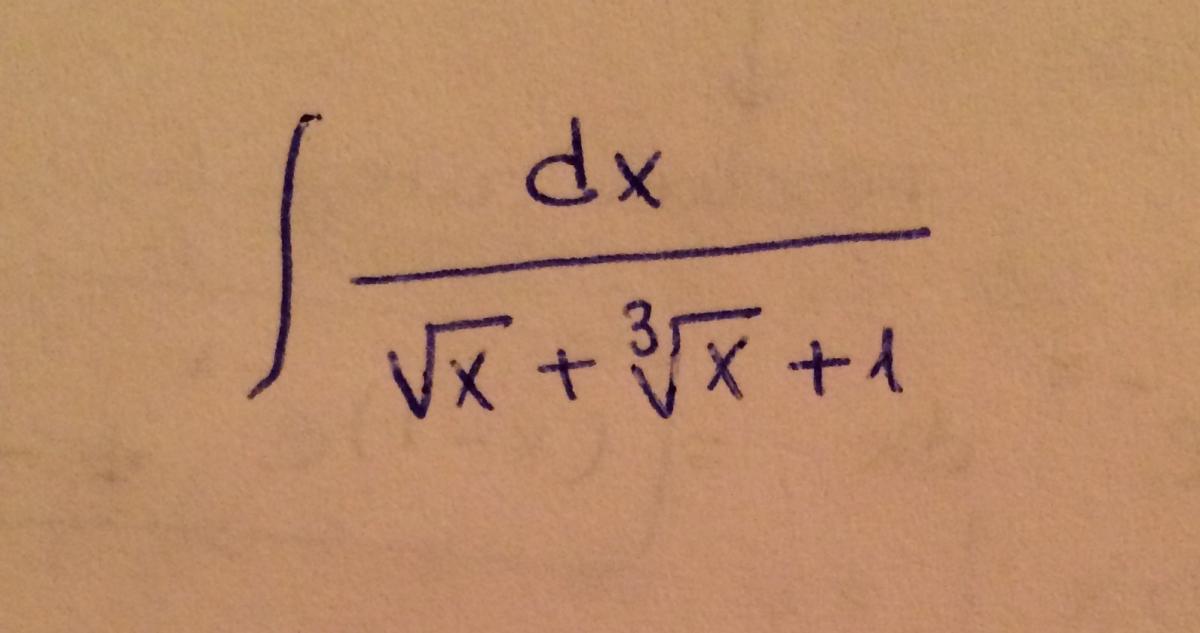 ∫ dx / (√x + ∛x + 1)